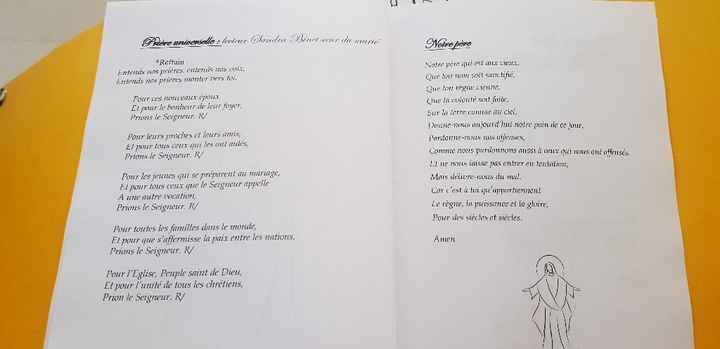 Prière universelle : lecteur Sandra Bénet sœur du marié
*Refrain
Entends nos prières, entends nos voix,
Entends nos prières monter vers toi.
Pour ces nouveaux époux
Et pour le bonheur de leur foyer,
Prions le Seigneur. R/
Pour leurs proches et leurs amis,
Et pour tous ceux qui les ont aidés,
Prions le Seigneur. R/
Pour les jeunes qui se préparent au mariage,
Et pour tous ceux que le Seigneur appelle
A une autre vocation,
Prions le Seigneur. R/
Pour toutes les familles dans le monde,
Et pour que s'affermisse la paix entre les nations,
Prions le Seigneur. R/
Pour l'Eglise, Peuple saint de Dieu,
Et pour l'unité de tous les chrétiens,
Prion le Seigneur. R/
Notre père
Notre père qui est aux cieux,
Que ton nom soit sanctifié,
Que ton règne vienne,
Que ta volonté soit faite,
Sur la terre comme au ciel,
Donne-nous aujourd'hui notre pain de ce jour,
Pardonne-nous nos offenses,
Comme nous pardonnons aussi à ceux qui nous ont offensés.
Et ne nous laisse pas entrer en tentation,
Mais délivre-nous du mal.
Car c'est à toi qu'appartiennent
Le règne, la puissance et la gloire,
Pour des siècles et siècles.
Amen